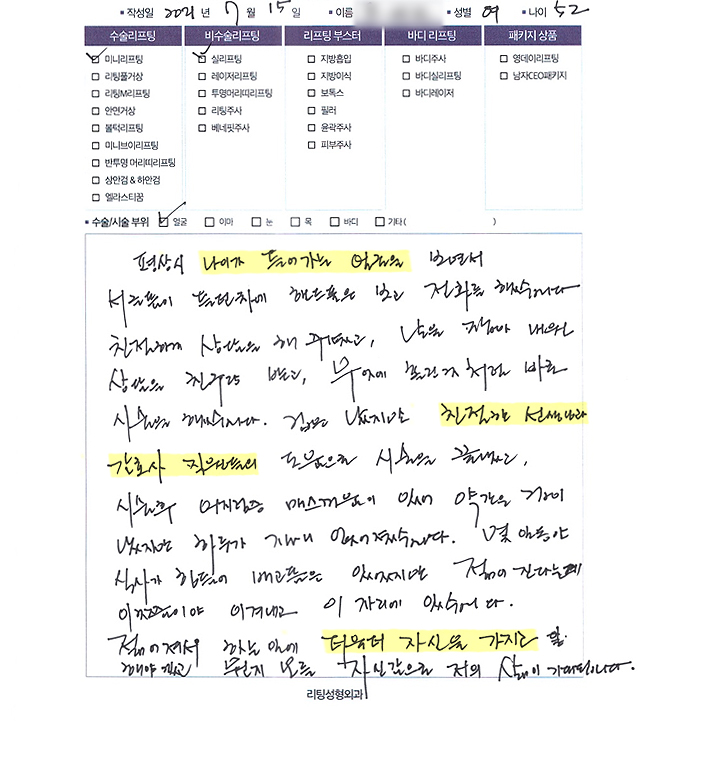 • 작성일 2021 년 7 월 15 일 • 이름 • 성별 여 • 나이 52
수술리프팅 비수술리프팅 리프팅 부스터 바디 리프팅 패키지 상품
미니리프팅 실리프팅 지방흡입 바디주사 영데이리프팅
리팅풀거상 레이저리프팅 지방이식 바디실리프팅 남자CEO패키지
리팅M리프팅 투명머리띠리프팅 보톡스 바디레이저
안면거상 리팅주사 필러
볼턱리프팅 베네핏주사 윤곽주사
미니브이리프팅 피부주사
반투명 머리띠리프팅
상안검 & 하안검
엘라스티꿈
• 수술/시술 부위 얼굴 이마 눈 목 바디 기타( )
평상시 나이가 들어가는 얼굴을 보면서
서글픔이 들던차에 핸드폰을 보고 전화를 했습니다
친절하게 상담을 해 주셨고, 날을 잡아 내원
상담을 친구랑 받고, 무엇에 홀린것 처럼 바로
시술을 했습니다. 겁은 났지만 친절하는 선생님과
간호사 직원분들의 도움으로 시술을 끝내고,
시술후 어지럼증 매스꺼움이 있어 약간은 겁이
났지만 하루가 지나니 없어졌습니다. 몇 일동안
식사가 힘들어 배고픔은 있었지만 젊어 진다는데
이쯤이야 이겨내고 이 자리에 있습니다.
젊어져서 하는 일에 더욱더 자신을 가지고 일
해야 겠고 뭔지 모를 자신감으로 저의 삶이 기대됩니다.
리팅성형외과